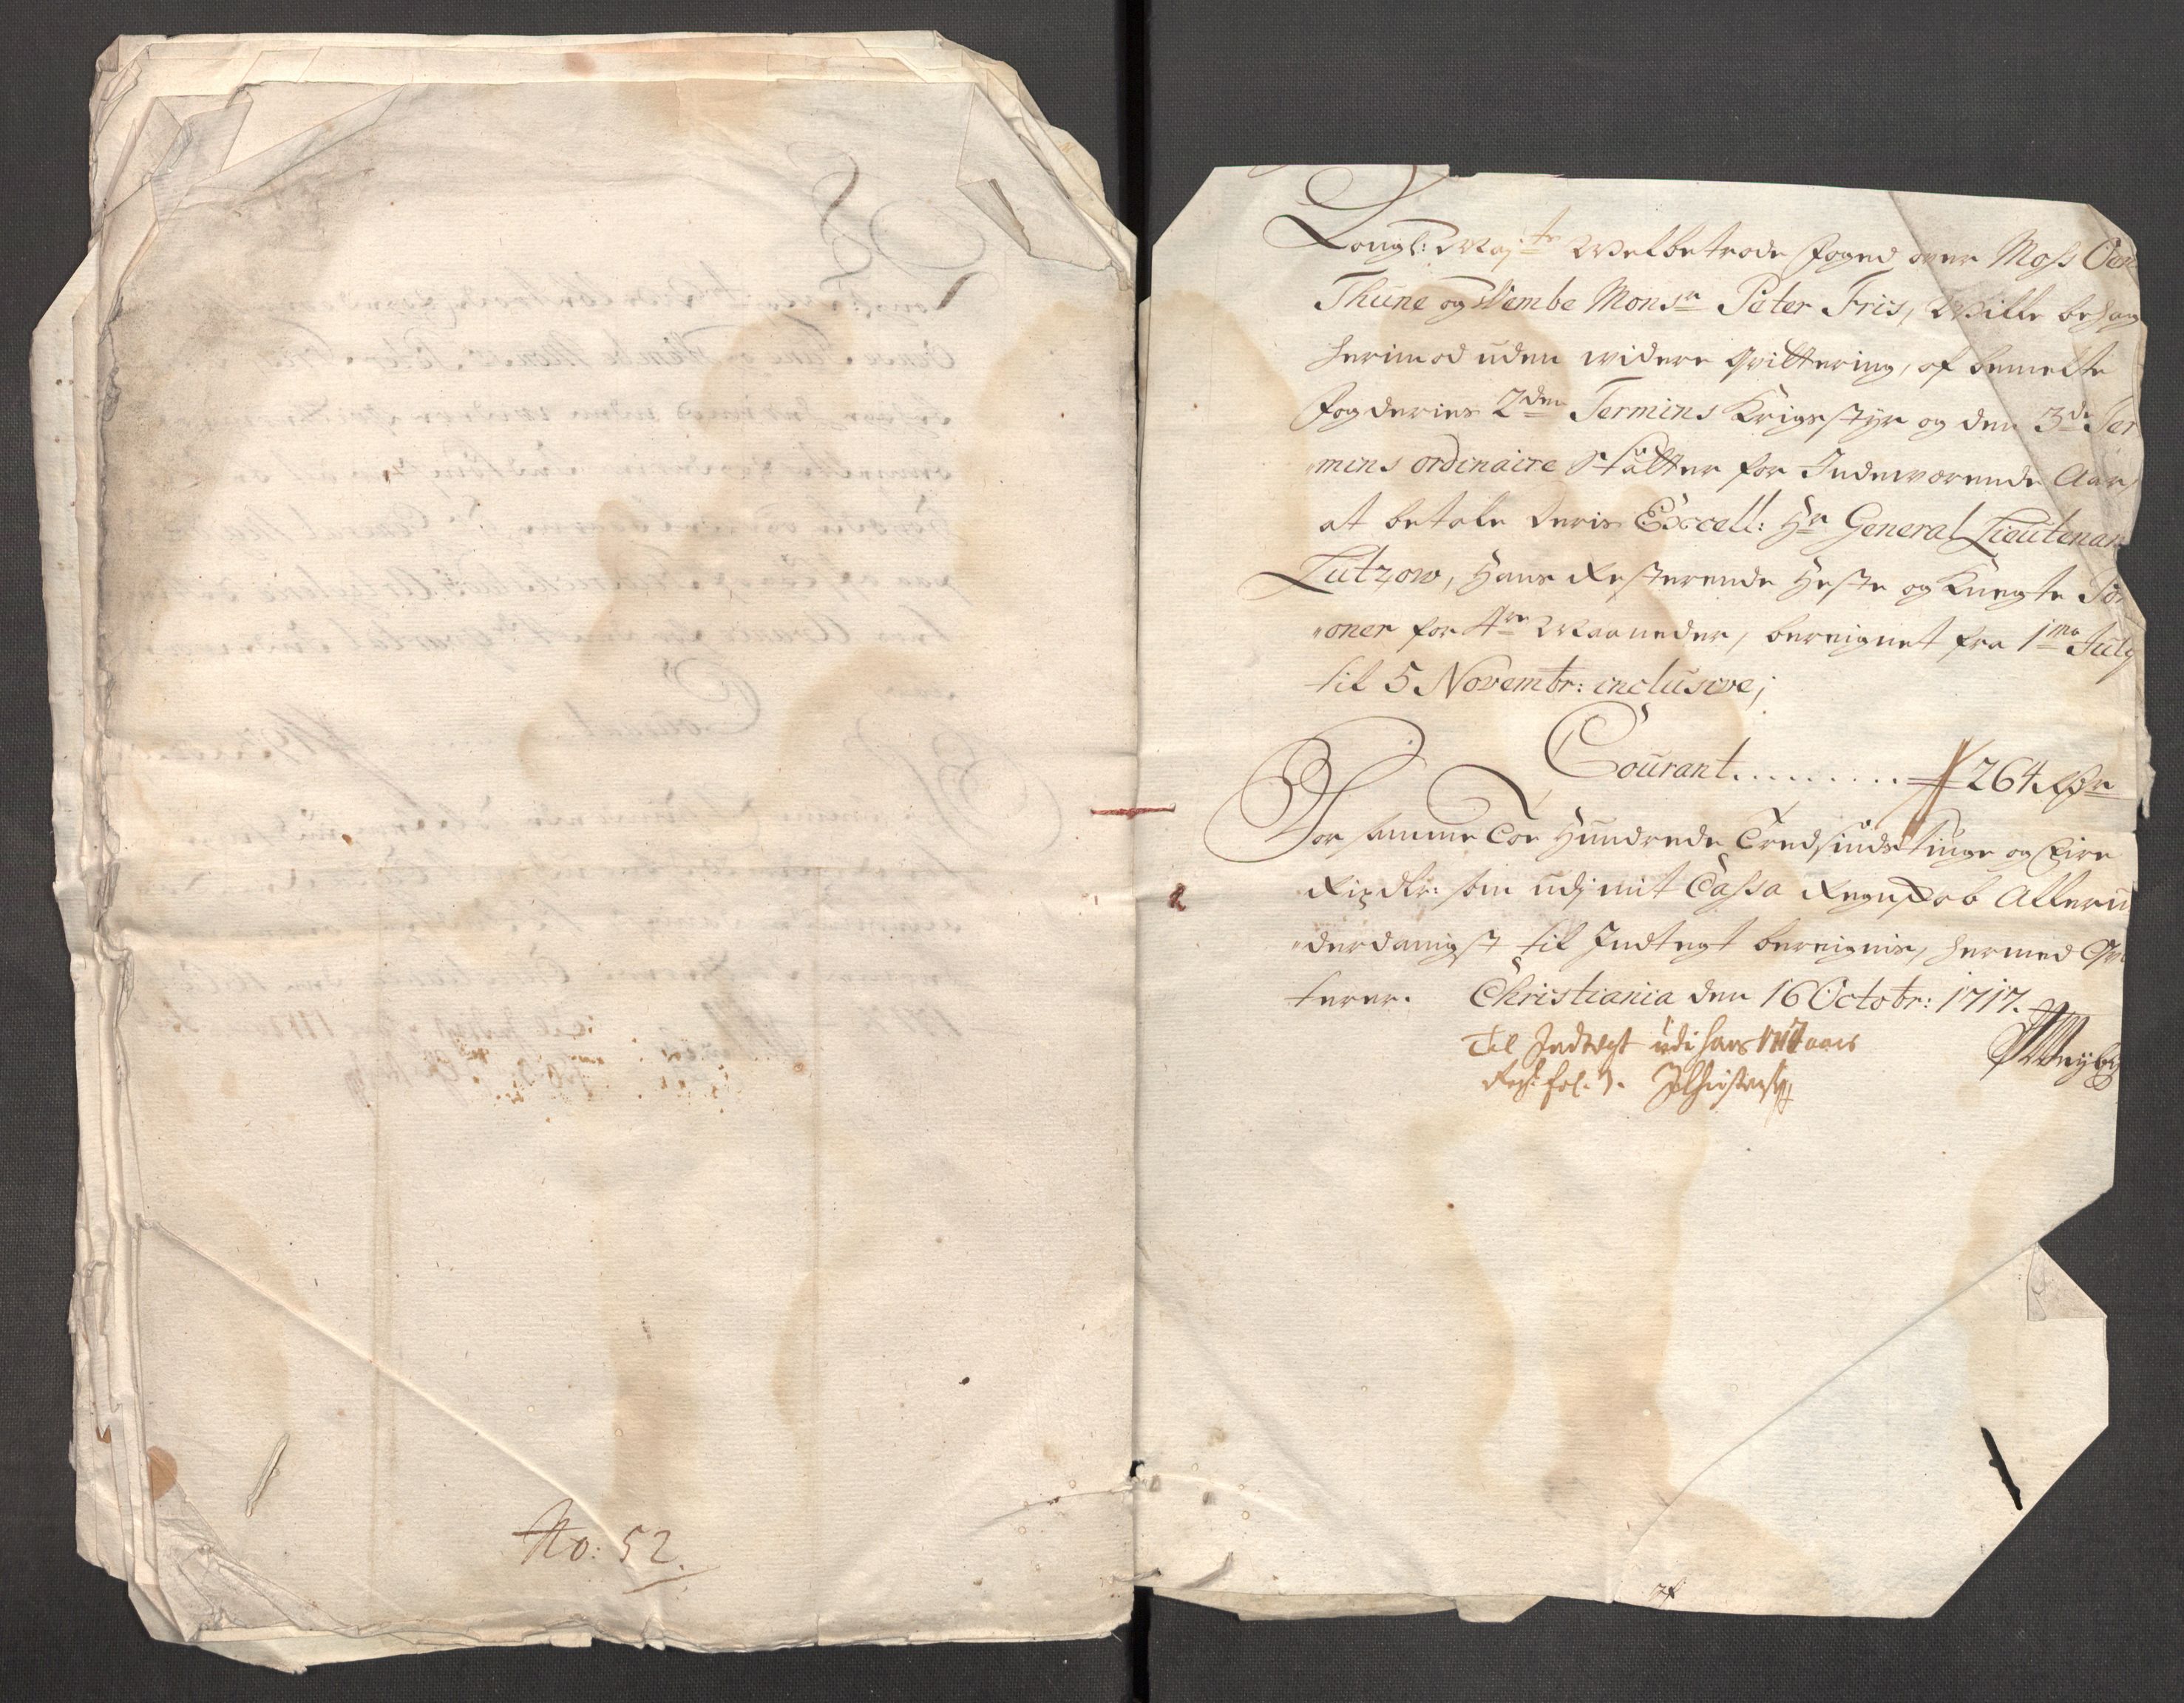 No: 52.
Kongl: May:ts Welbetrode foged over Moss
Thune og Wembe Monsr Peter Friis, Wille behag
herimod uden widere Qvittering, af bemelte
fogderies 2den Termins Krigsstyr og den 3de Ter
mins ordinaire Skatter for Indeværende Aar,
at betale deris Excell: Hr General Lieutenan
Lutzow, Hans Resterende Heste og Knegte
oner for 4re Maaneder, bereignet fra 1mo July
til 5 Novembr: inclusive;
Courant......... 264 Rdr
For samme Toe Hundrede Tredsindstiuge og Fire
Rixdlr: som udj mit Cassa Regnskab Alleru
derdanigst til Indtegt bereignis, hermed Qvi
terer. Christiania den 16 Octobr: 1717.
Til Indtegt udi hans 1717 aars
Regsk: fol: 7.